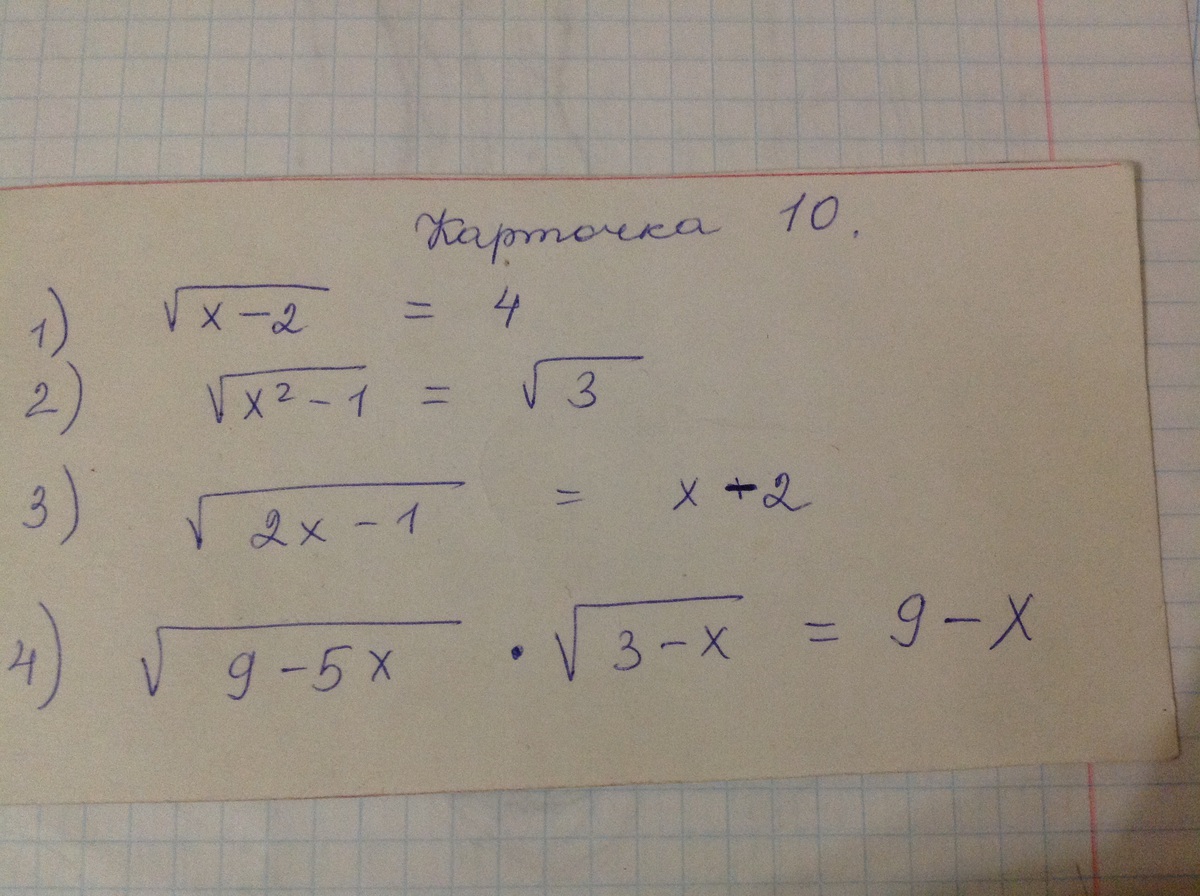 Карточка 10.
1) √(x-2) = 4
2) √(x²-1) = √3
3) √(2x-1) = x+2
4) √(9-5x) · √(3-x) = 9-x